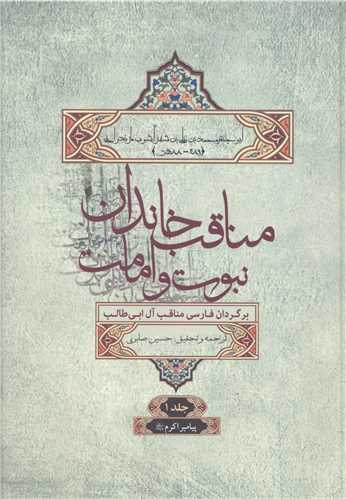 ابی‌جعفر محمد بن علی بن شهرآشوب مازندرانی
(۴۸۹ - ۵۸۸ ق)
مناقب خاندان
نبوت و امامت
برگردان فارسی مناقب آل ابی‌طالب
ترجمه و تحقیق: حسین صابری
جلد ۱
پیامبر اکرم ﷺ